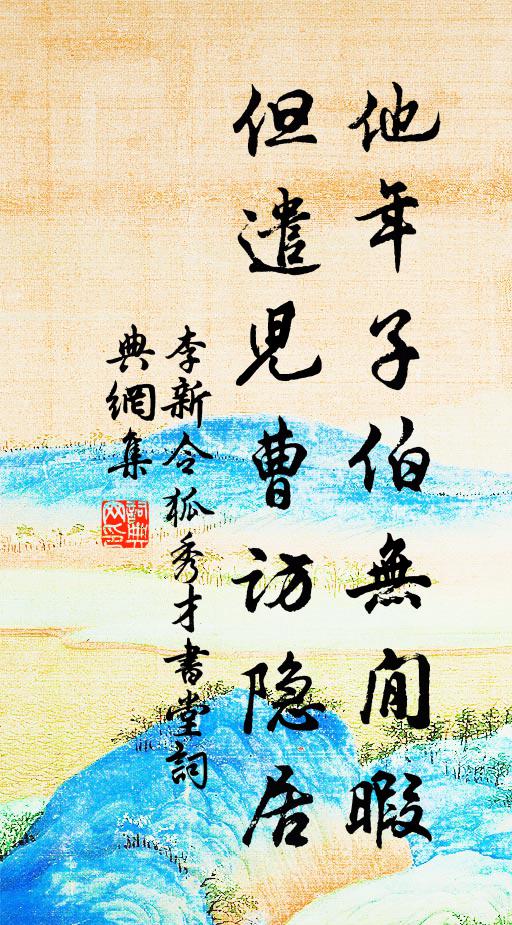 他年子伯無閒暇
但遣兒曹訪隐居
李新令狐秀才書堂詞
典網集
詞典網印